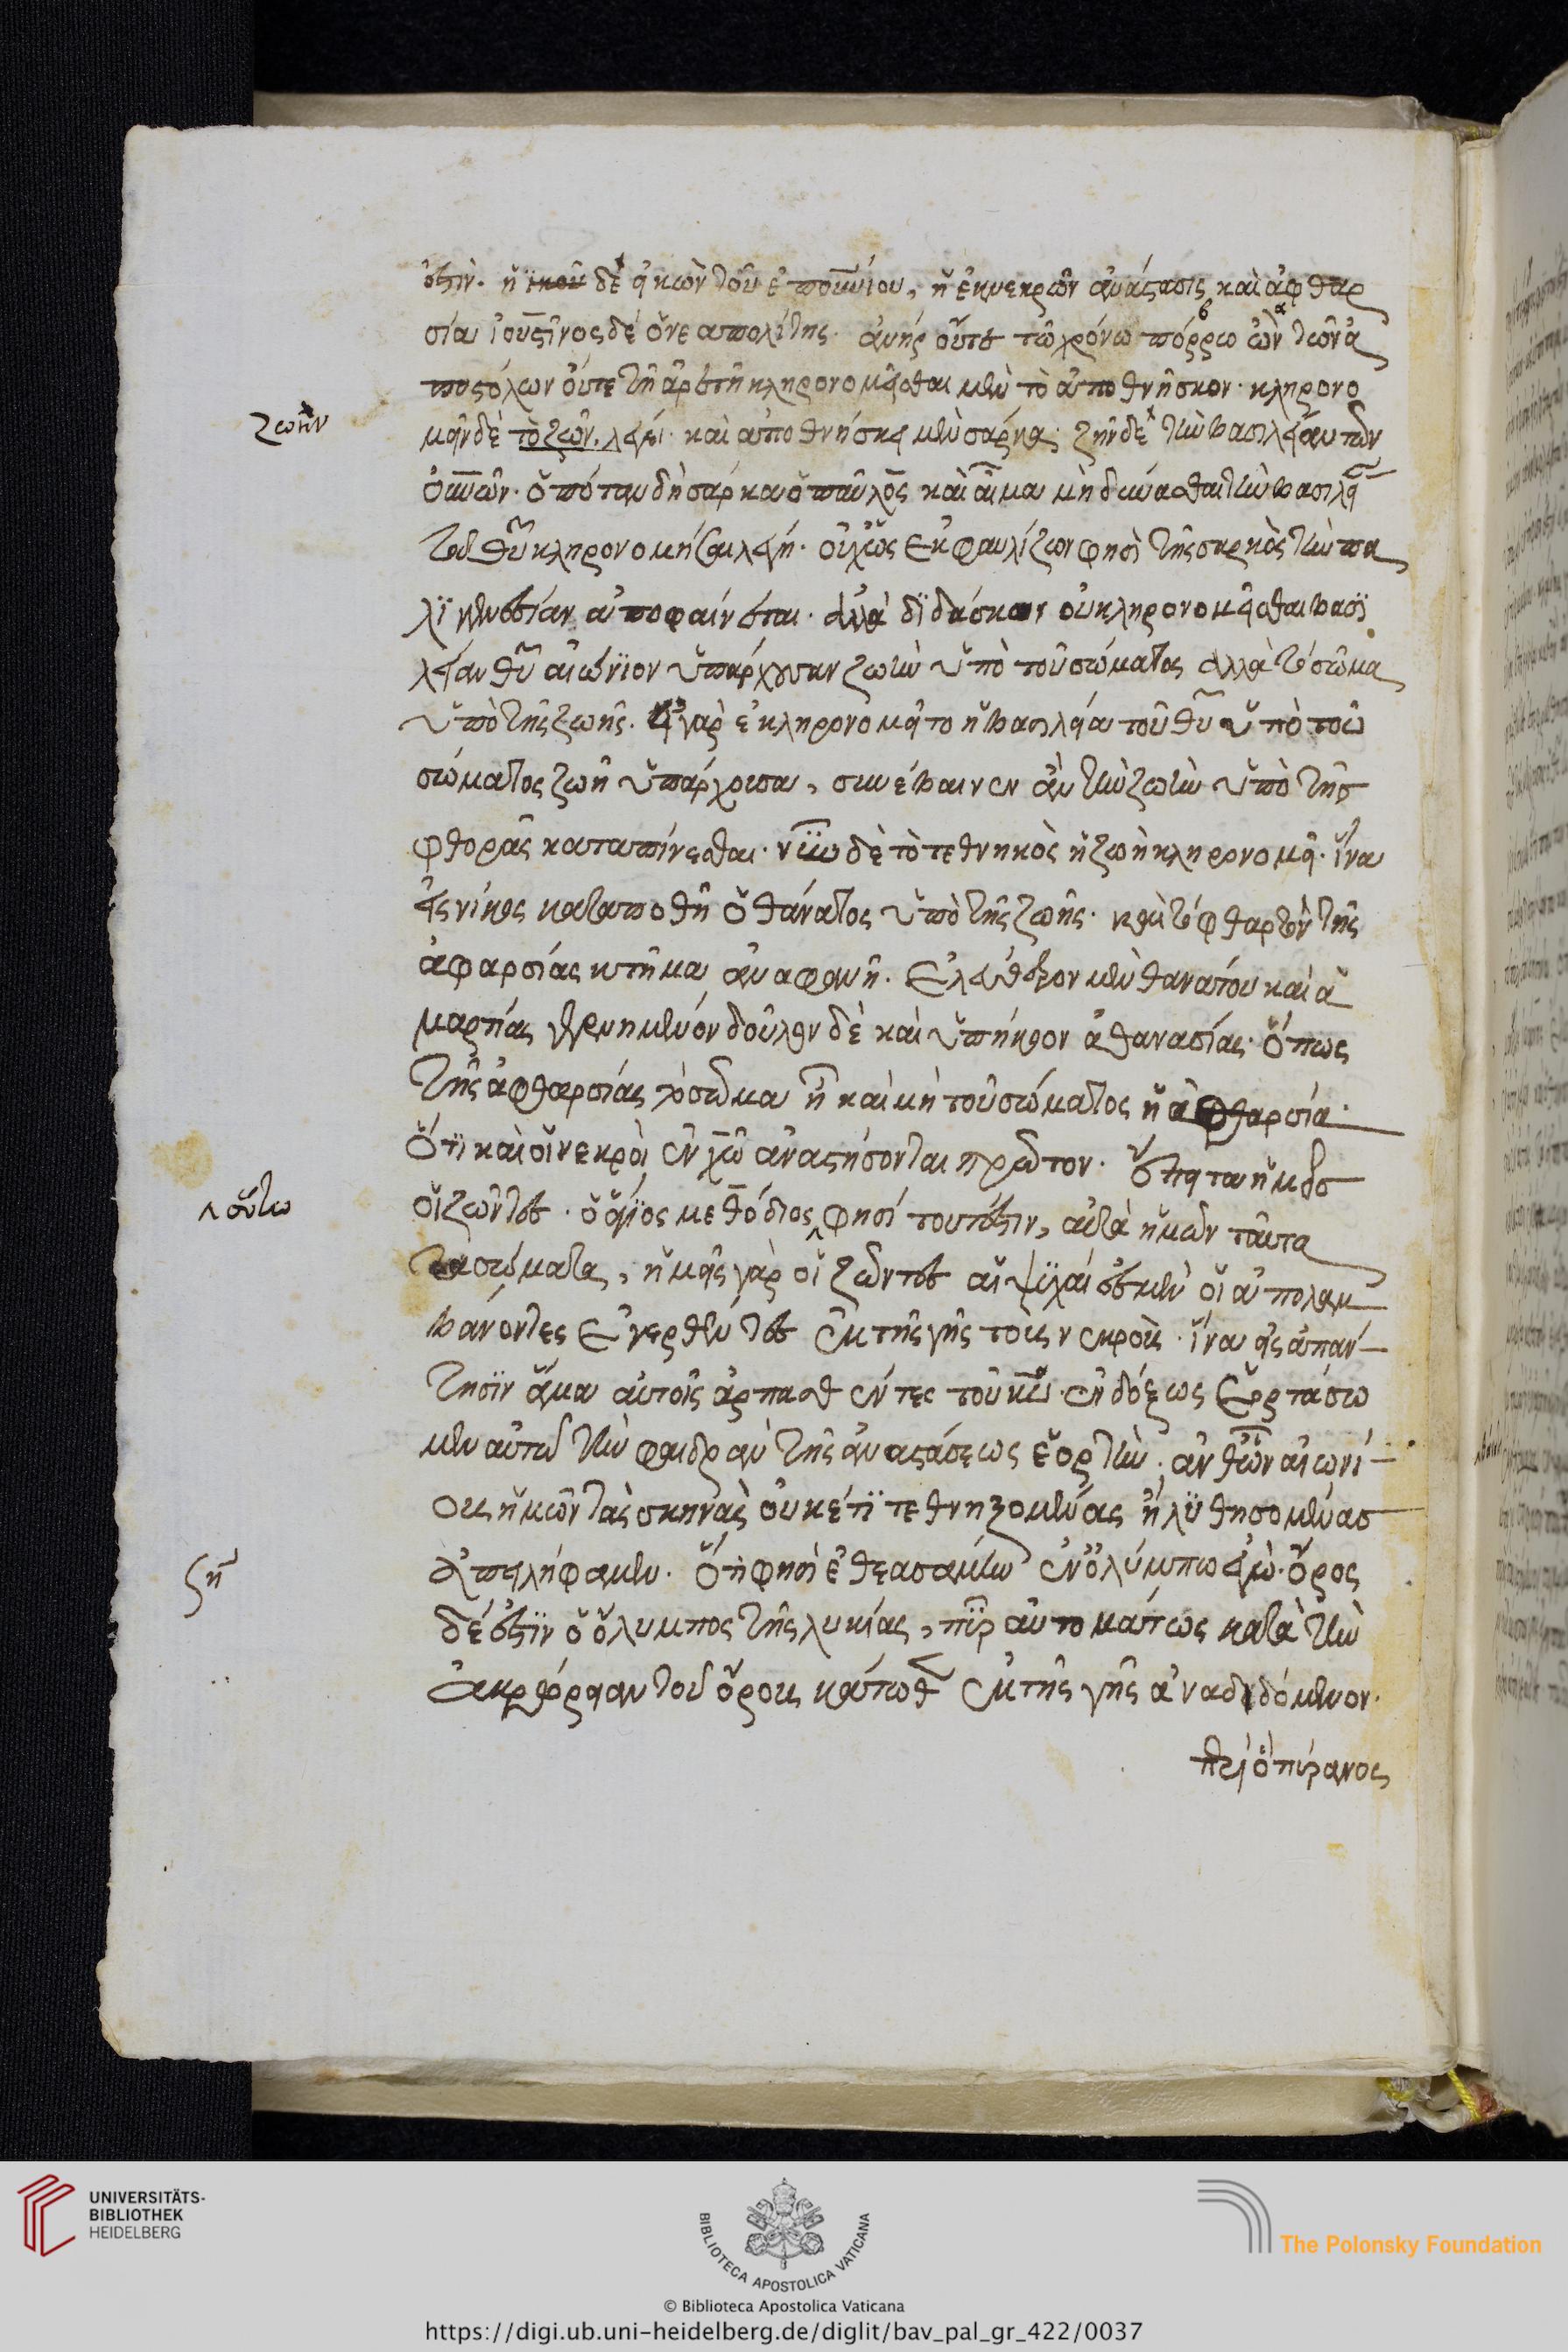 ἐστιν. ἡ εἰκὼν δὲ εἰκὼν τοῦ ἐπουνίου, ἡ ἐκ νεκρῶν ἀνάστασις καὶ ἀφθαρ
σία ἰουστῖνος δὲ ὁ νεαπολίτης. ἀνὴρ οὔτε τῷ χρόνω πόρρω ὢν τῶν ἀ
ποστόλων οὔτε τῇ ἀρετῇ κληρονομεῖσθαι μὲν τὸ ἀποθνῆσκον. κληρονο
ζωὴν
μεῖν δὲ τὸ ζῶν λέγει. καὶ ἀποθνήσκει μὲν σάρκα. ζῆν δὲ τὴν βασιλείαν τῶν
οὐνῶν. ὁπόταν δὴ σάρκα ὁ παῦλος καὶ αἷμα μὴ δύνασθαι τὴν βασιλεί
τοῦ θυ κληρονομῆσαι λέγη. οὐχ ὡς ἐκφαυλίζων φησὶ τῆς σαρκὸς τὴν πα
λϊγγενεσίαν ἀποφαίνεται. ἀλλὰ δϊδάσκων οὐ κληρονομεῖσθαι βασϊ
λείαν θυ αἰώνϊον ὑπάρχουσαν ζωὴν ὑπὸ τοῦ σώματος ἀλλὰ τὸ σῶμα
ὑπὸ τῆς ζωῆς. εἰ γὰρ ἐκληρονομεῖτο ἡ βασιλεία τοῦ θυ ὑπὸ τοῦ
σώματος ζωὴ ὑπάρχουσα, συνέβαινεν ἂν τὴν ζωὴν ὑπὸ τῆς
φθορᾶς καταπίνεσθαι. νῦν δὲ τὸ τεθνηκὸς ἡ ζωὴ κληρονομεῖ. ἵνα
εἰς νίκος καταποθῆ ὁ θάνατος ὑπὸ τῆς ζωῆς. καὶ τὸ φθαρτὸν τῆς
ἀφαρσίας κτῆμα ἀναφανῆ. ἐλεύθερον μὲν θανάτου καὶ ἁ
μαρτίας γεγενημένον δοῦλον δὲ καὶ ὑπήκοον ἀθανασίας. ὅπως
τῆς ἀφθαρσίας τὸ σῶμα ἦ καὶ μὴ τοῦ σώματος ἡ ἀφθαρσία.
ὅτϊ καὶ οἱ νεκροὶ ἐν χῶ ἀναστήσονται πρῶτον. ἔπειτα ἡμεῖς
∧ οὕτω
οἱ ζῶντες. ὁ ἅγϊος μεθόδιος ∧ φησί τουτέστιν, αὐτὰ ἡμῶν ταῦτα
τὰ σώματα, ἡμεῖς γὰρ οἱ ζῶντες αἱ ψϋχαί ἐσμεν οἱ ἀπολαμ
βάνοντες ἐγερθέντες ἐκ τῆς γῆς τοὺς νεκρούς. ἵνα εἰς ἀπάν
τησϊν ἅμα αὐτοῖς ἁρπασθέντες τοῦ κυ. ἐνδόξως ἑορτάσω
μεν αὐτῶ τὴν φαιδρὰν τῆς ἀναστάσεως ἑορτὴν. ἀνθ' ὧν αἰωνί
ους ἡμῶν τὰς σκηνὰς οὐκέτϊ τεθνηξομένας ἢ λϋθησομένας
ζη
ἀπειλήφαμεν. ὅτι φησὶ ἐθεασάμην ἐν ὀλύμπω ἐγὼ. ὄρος
δέ ἐστϊν ὁ ὄλυμπος τῆς λυκίας, πῦρ αὐτομάτως κατὰ τὴν
ἀκρώρειαν τοῦ ὄρους κάτωθ ἐκ τῆς γῆς ἀναδιδόμενον.
περὶ ὃ πύραγνος
UNIVERSITÄTS-
BIBLIOTHEK
HEIDELBERG
BIBLIOTECA APOSTOLICA VATICANA
The Polonsky Foundation
© Biblioteca Apostolica Vaticana
https://digi.ub.uni-heidelberg.de/diglit/bav_pal_gr_422/0037